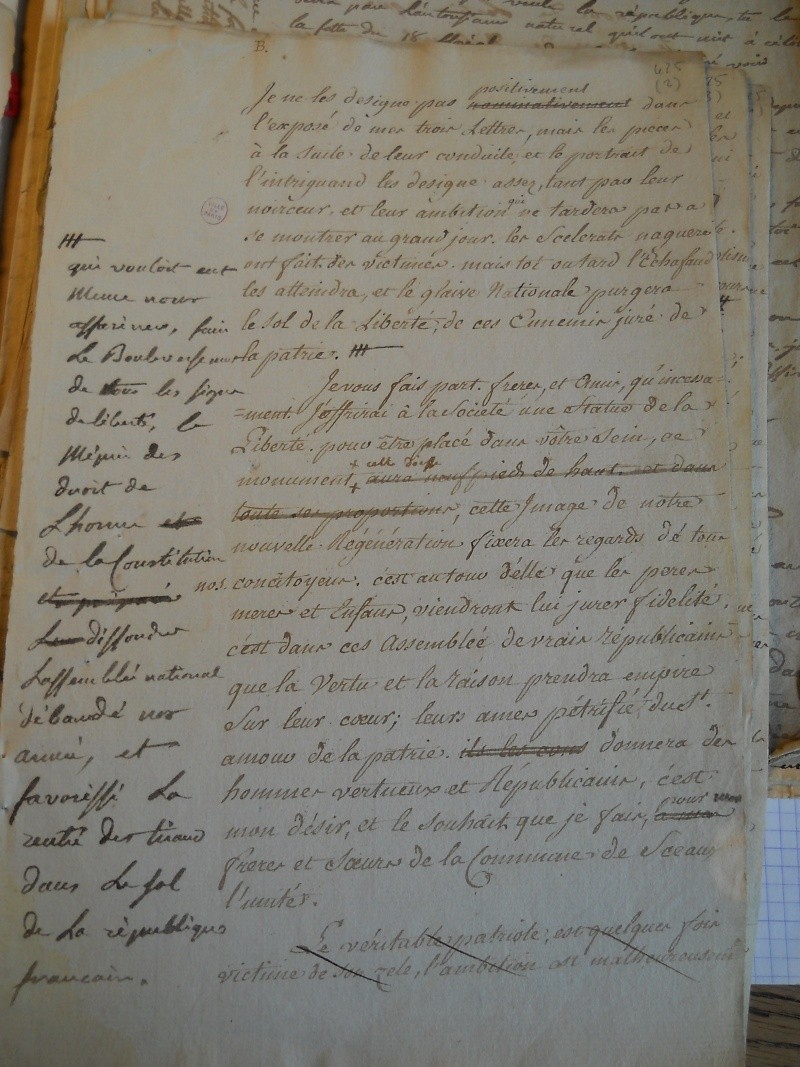 B.
425
(2)
positivement
Je ne les designe pas nommativement dans
l'exposé de mes trois Lettres, mais les pieces
à la suite de leur conduite, et le portrait de
l'intriguand les designe assez, tant par leur
noirceur, et leur ambition qui ne tardera pas a
se montrer au grand jour. les Scelerats naguere
ont fait des victimes. mais tot ou tard l'Echafaud
les atteindra, et le glaive Nationale purgera
le sol de la Liberté, de ces Ennemis juré de
la patrie.
Je vous fais part, freres, et Amis, qu'incessa=
=ment J'offrirai à la Société une Statue de la
Liberté. pour être placé dans vôtre sein, ce
+ cette déesse
monument, + aura neuf pieds de haut. et dans
toute ses proportions, cette Image de notre
nouvelle Régénération fixera les regards dé tous
nos concitoyens. c'est autour d'élle que les peres
meres et Enfans, viendront lui jurer fidelité.
c'est dans ces Assemblée de vrais républicains
que la Vertu et la raison prendra empire
Sur leur cœur; leurs ames pétrifié du st.
amour de la patrie. ils les donnera des
hommes vertueux et Républicains, c'est
mon désir, et le souhait que je fais, pour mes
freres et Sœurs de la Commune de Sceaux
l'unité.
Le véritable patriote, est quelques fois
victime de son zele, l'ambition est malheureusemt
qui vouloit
Meme nous
affamer, fair
Le Bouleversement
de tous les signes
de liberté, le
Mépris des
droit de
Lhomme et
de la Constitution
et
Les dissoudre
Lassemblée national
débandé nos
armée, et
favorissé La
rentré des tirans
dans Le sol
de La république
francais.